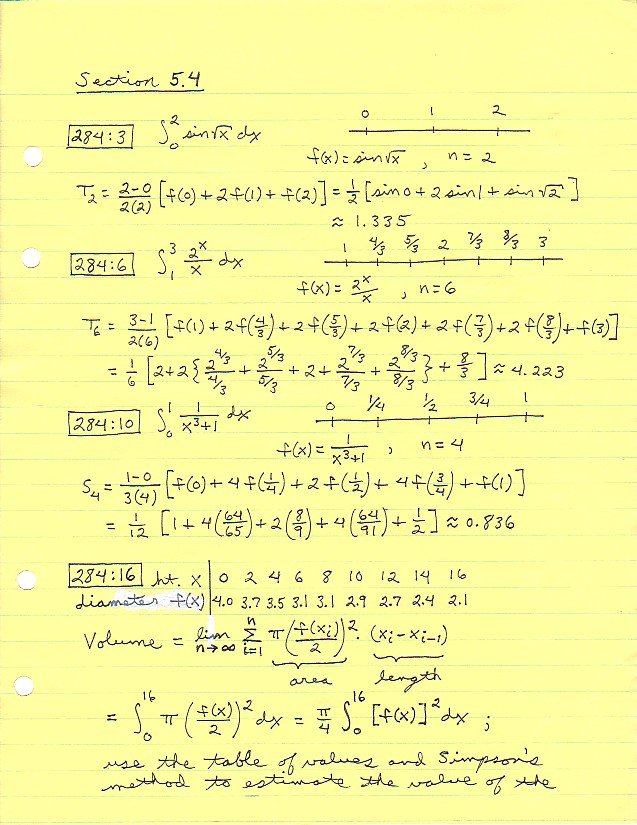 Section 5.4
284:3 ∫₀² sin√x dx
0 1 2
f(x) = sin√x , n = 2
T₂ = (2-0)/(2(2)) [f(0) + 2f(1) + f(2)] = 1/2 [sin 0 + 2 sin 1 + sin √2]
≈ 1.335
284:6 ∫₁³ 2ˣ/x dx
1 4/3 5/3 2 7/3 8/3 3
f(x) = 2ˣ/x , n = 6
T₆ = (3-1)/(2(6)) [f(1) + 2f(4/3) + 2f(5/3) + 2f(2) + 2f(7/3) + 2f(8/3) + f(3)]
= 1/6 [2 + 2{2^(4/3)/(4/3) + 2^(5/3)/(5/3) + 2 + 2^(7/3)/(7/3) + 2^(8/3)/(8/3)} + 8/3] ≈ 4.223
284:10 ∫₀¹ 1/(x³+1) dx
0 1/4 1/2 3/4 1
f(x) = 1/(x³+1) , n = 4
S₄ = (1-0)/(3(4)) [f(0) + 4f(1/4) + 2f(1/2) + 4f(3/4) + f(1)]
= 1/12 [1 + 4(64/65) + 2(8/9) + 4(64/91) + 1/2] ≈ 0.836
284:16 ht. x | 0 2 4 6 8 10 12 14 16
diameter f(x) | 4.0 3.7 3.5 3.1 3.1 2.9 2.7 2.4 2.1
Volume = lim n→∞ Σ i=1 n π(f(xᵢ)/2)² · (xᵢ - xᵢ₋₁)
area length
= ∫₀¹⁶ π (f(x)/2)² dx = π/4 ∫₀¹⁶ [f(x)]² dx ;
use the table of values and Simpson's
method to estimate the value of the